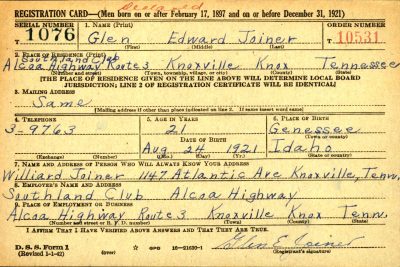 Declared
REGISTRATION CARD—(Men born on or after February 17, 1897 and on or before December 31, 1921)
SERIAL NUMBER 1. NAME (Print) ORDER NUMBER
T 1076 Glen Edward Joiner T 10531
(First) (Middle) (Last)
2. PLACE OF RESIDENCE (Print)
Southland Club
Alcoa Highway Route 3 Knoxville Knox Tennessee
(Number and street) (Town, township, village, or city) (County) (State)
[THE PLACE OF RESIDENCE GIVEN ON THE LINE ABOVE WILL DETERMINE LOCAL BOARD
JURISDICTION; LINE 2 OF REGISTRATION CERTIFICATE WILL BE IDENTICAL]
3. MAILING ADDRESS
Same
[Mailing address if other than place indicated on line 2. If same insert word same]
4. TELEPHONE 5. AGE IN YEARS 6. PLACE OF BIRTH
3-9763 21 Genessee
DATE OF BIRTH (Town or county)
Aug 24 1921 Idaho
(Exchange) (Number) (Mo.) (Day) (Yr.) (State or country)
7. NAME AND ADDRESS OF PERSON WHO WILL ALWAYS KNOW YOUR ADDRESS
Williard Joiner 1147 Atlantic Ave Knoxville, Tenn.
8. EMPLOYER'S NAME AND ADDRESS
Southland Club Alcoa Highway
9. PLACE OF EMPLOYMENT OR BUSINESS
Alcoa Highway Route 3 Knoxville Knox Tenn.
(Number and street or R. F. D. number) (Town) (County) (State)
I AFFIRM THAT I HAVE VERIFIED ABOVE ANSWERS AND THAT THEY ARE TRUE.
D. S. S. Form 1 GPO 16—21630-1 Glen E Joiner
(Revised 1-1-42) (Registrant's signature)